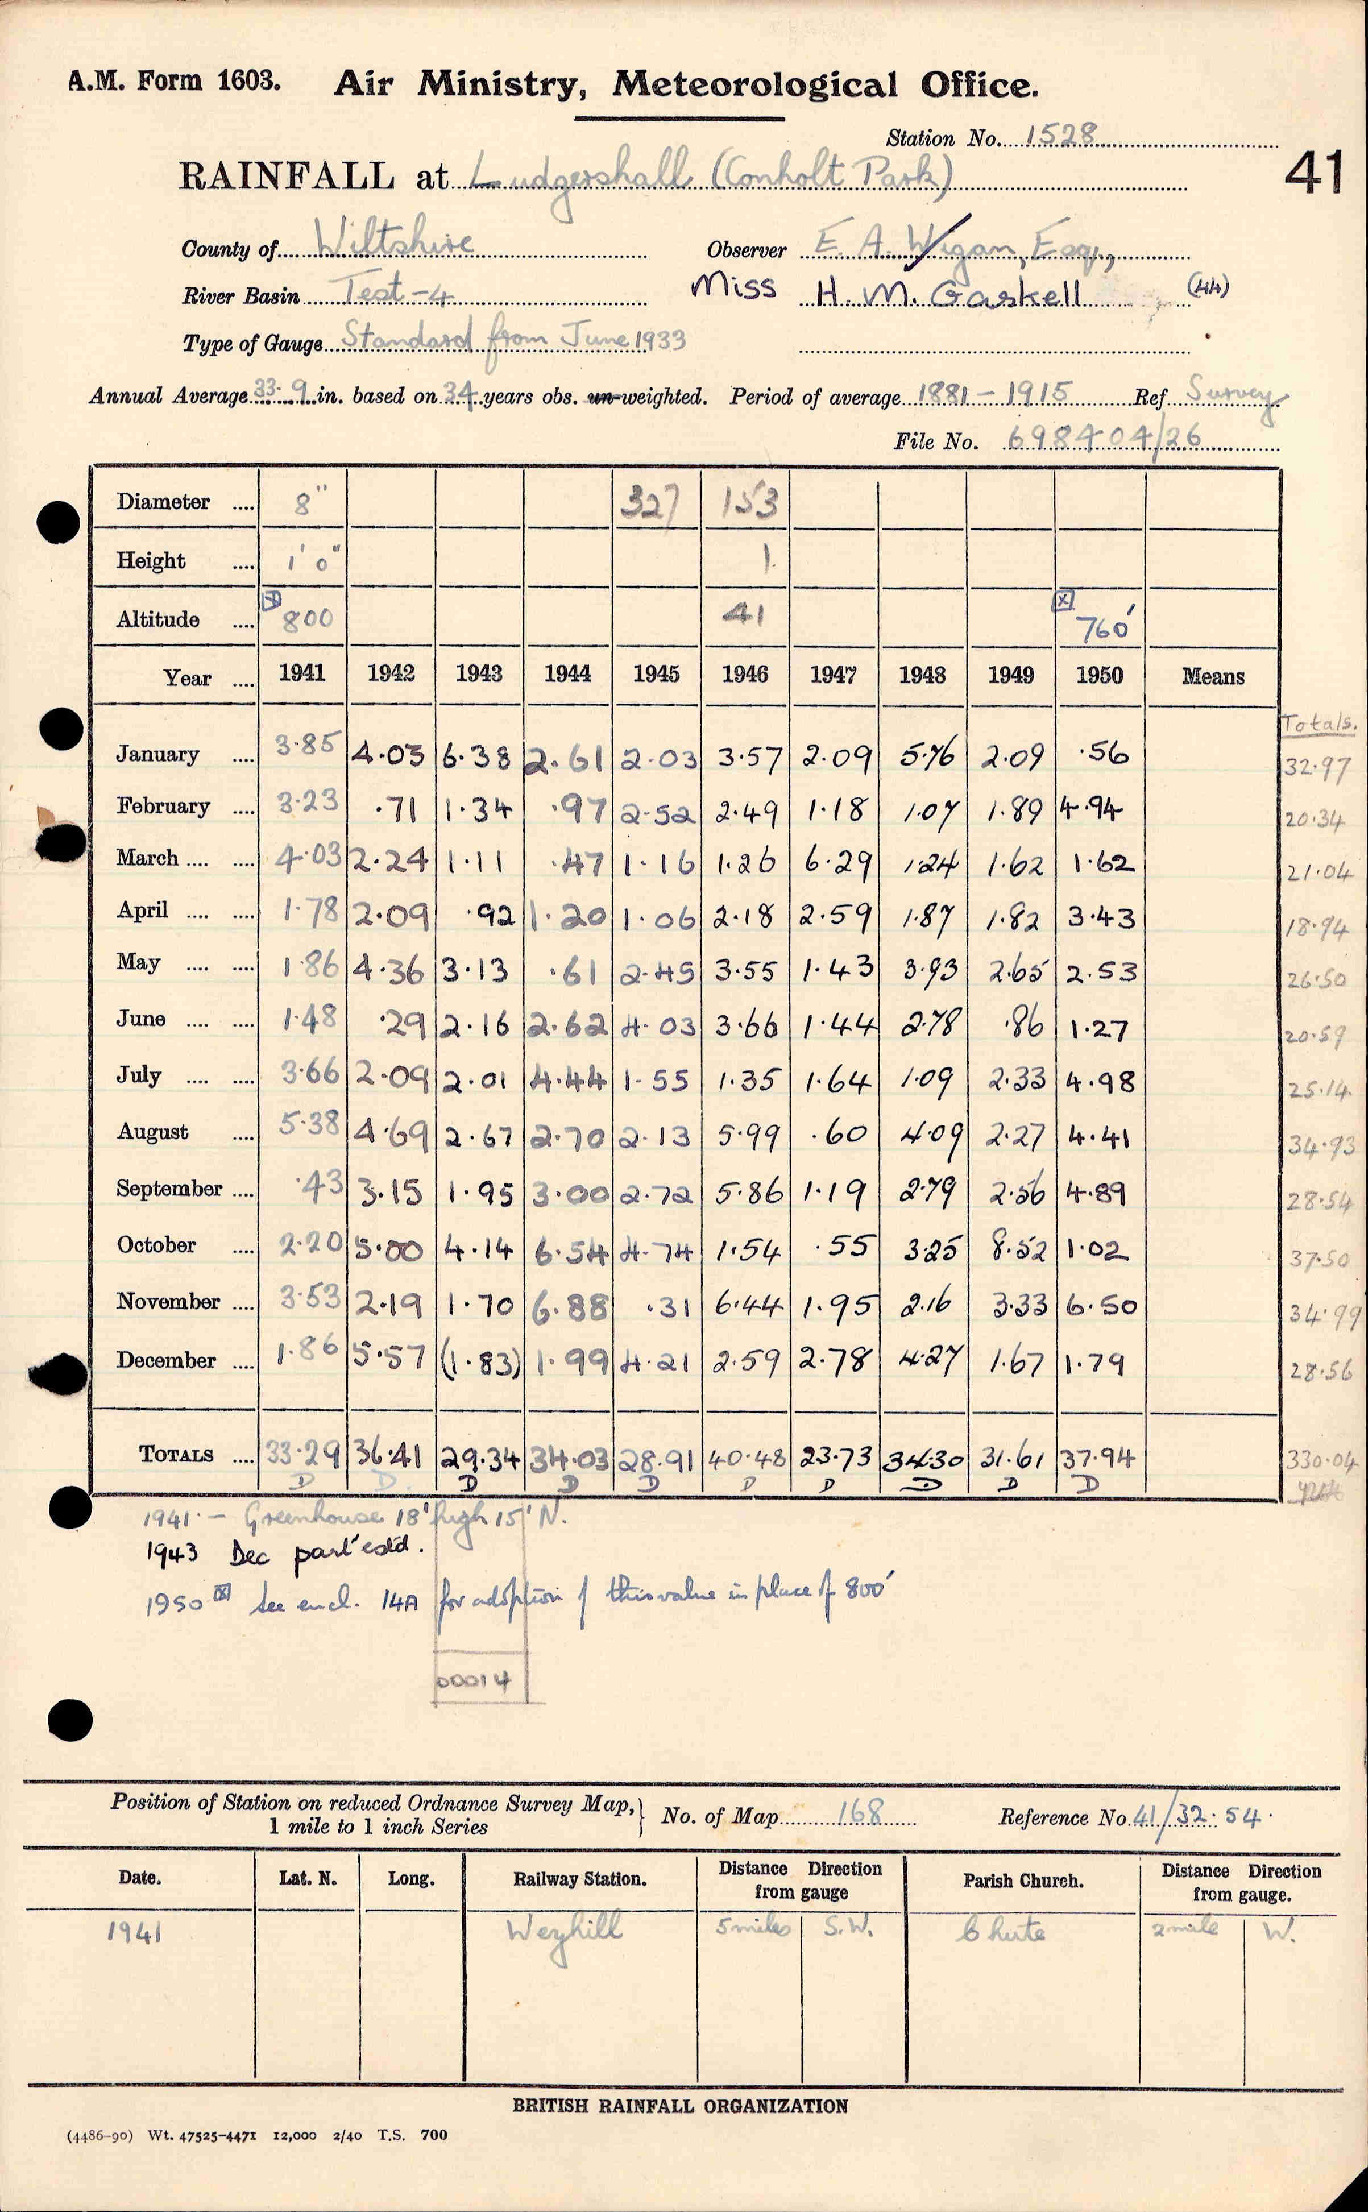 A.M. Form 1603. Air Ministry, Meteorological Office.
Station No. 1528
41
RAINFALL at Ludgershall (Conholt Park)
County of Wiltshire Observer E. A. Wigan, Esq.,
River Basin Test-4 Miss H. M. Gaskell (44)
Type of Gauge Standard from June 1933
Annual Average 33.9 in. based on 34 years obs. un-weighted. Period of average 1881-1915 Ref Survey
File No. 698404/26
Diameter .... 8" 327 153
Height .... 1' 0" 1.
Altitude .... 800 41 760'
Year .... 1941 1942 1943 1944 1945 1946 1947 1948 1949 1950 Means
Totals.
January .... 3.85 4.03 6.38 2.61 2.03 3.57 2.09 5.76 2.09 .56 32.97
February .... 3.23 .71 1.34 .97 2.52 2.49 1.18 1.07 1.89 4.94 20.34
March .... .... 4.03 2.24 1.11 .47 1.16 1.26 6.29 1.24 1.62 1.62 21.04
April .... .... 1.78 2.09 .92 1.20 1.06 2.18 2.59 1.87 1.82 3.43 18.94
May .... .... 1.86 4.36 3.13 .61 2.45 3.55 1.43 3.93 2.65 2.53 26.50
June .... .... 1.48 .29 2.16 2.62 4.03 3.66 1.44 2.78 .86 1.27 20.59
July .... .... 3.66 2.09 2.01 4.44 1.55 1.35 1.64 1.09 2.33 4.98 25.14
August .... 5.38 4.69 2.67 2.70 2.13 5.99 .60 4.09 2.27 4.41 34.93
September .... .43 3.15 1.95 3.00 2.72 5.86 1.19 2.79 2.56 4.89 28.54
October .... 2.20 5.00 4.14 6.54 4.74 1.54 .55 3.25 8.52 1.02 37.50
November .... 3.53 2.19 1.70 6.88 .31 6.44 1.95 2.16 3.33 6.50 34.99
December .... 1.86 5.57 (1.83) 1.99 4.21 2.59 2.78 4.27 1.67 1.79 28.56
TOTALS .... 33.29 36.41 29.34 34.03 28.91 40.48 23.73 34.30 31.61 37.94 330.04
D D D D D D D D D D
1941. - Greenhouse 18' high 15' N.
1943 Dec part est'd.
1950 See encl. 14A for adoption of this value in place of 800'
00014
Position of Station on reduced Ordnance Survey Map, 1 mile to 1 inch Series } No. of Map 168 Reference No. 41/32.54.
Date. Lat. N. Long. Railway Station. Distance Direction from gauge Parish Church. Distance Direction from gauge.
1941 Weyhill 5 miles S.W. Chute 2 mile W.
BRITISH RAINFALL ORGANIZATION
(4486-90) Wt. 47525-4471 12,000 2/40 T.S. 700